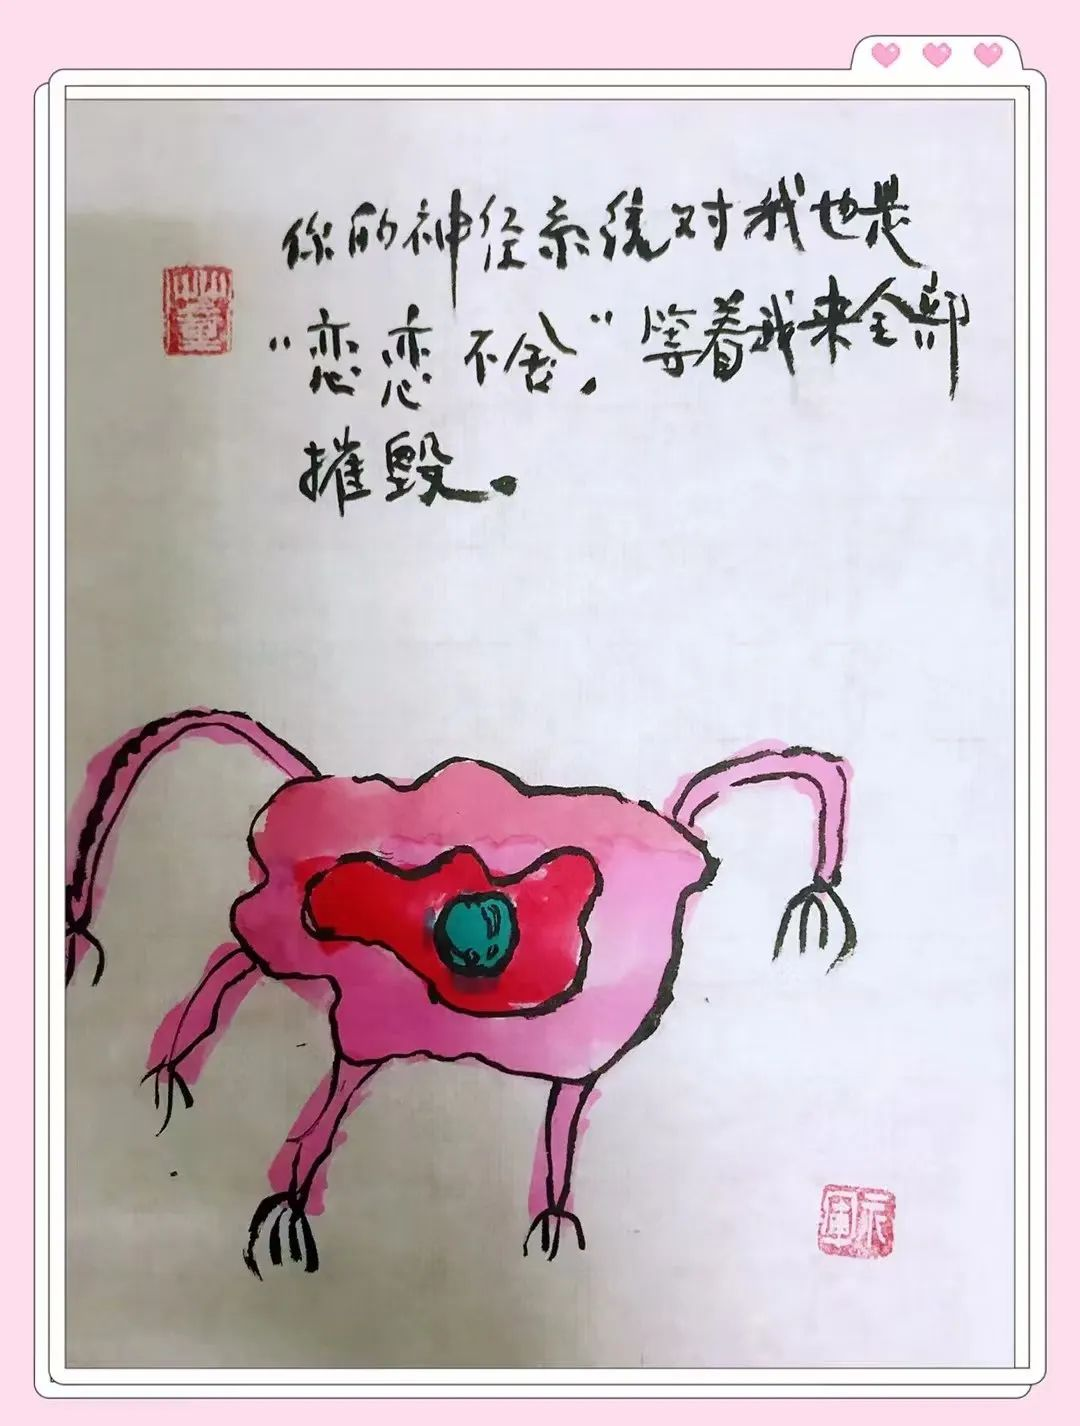 你的神经系统对我也是
“恋恋不舍”，等着我来全部
摧毁。